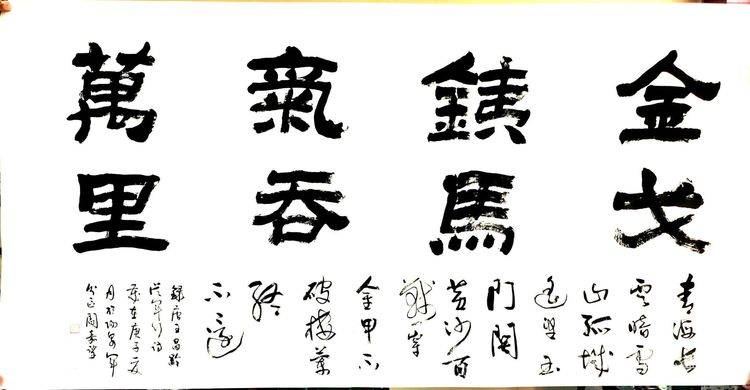 金戈
銕馬
氣吞
萬里
青海长
雲暗雪
山孤城
遥望玉
門関
黄沙百
戰穿
金甲不
破楼蘭
终
不还
録唐王昌齡
從軍行詩
歲在庚子夏
月於